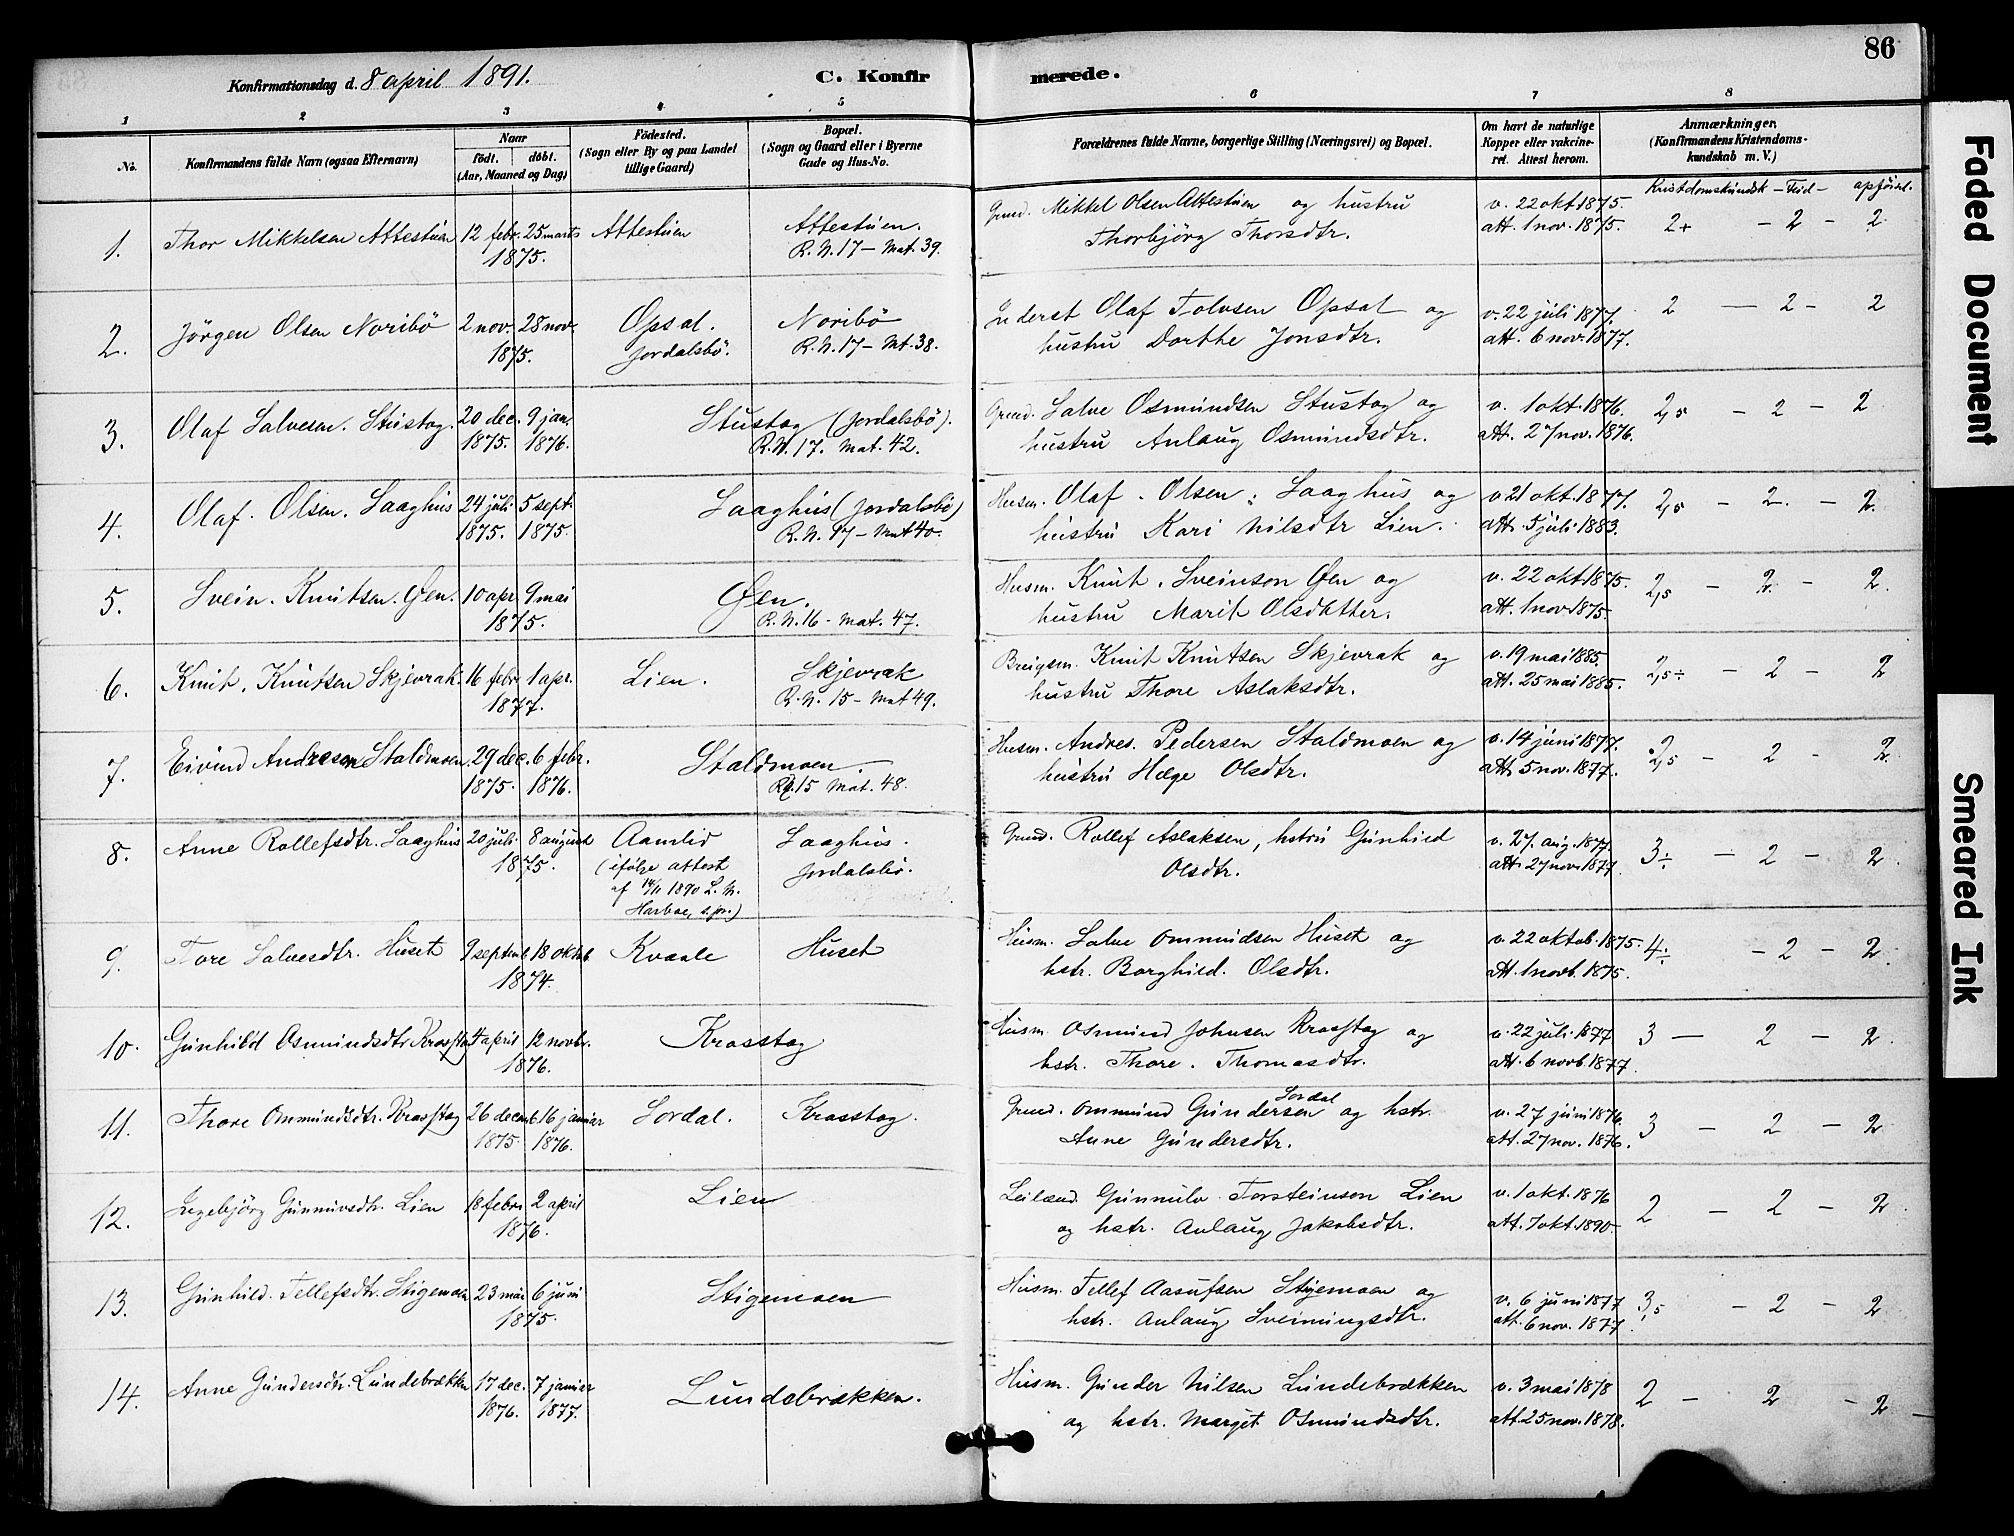 86
Konfirmationsdag d. 8 april 1891.
C. Konfirmerede.
1 2 3 4 5 6 7 8
No.
Konfirmandens fulde Navn (ogsaa Efternavn)
Naar
födt. döbt.
(Aar, Maaned og Dag)
Födested.
(Sogn eller By og paa Landet
tillige Gaard)
Bopæl.
(Sogn og Gaard eller i Byerne
Gade og Hus-No.
Forældrenes fulde Navne, borgerlige Stilling (Næringsvei) og Bopæl.
Om havt de naturlige
Kopper eller vakcine-
ret. Attest herom.
Anmærkninger.
(Konfirmandens Kristendoms-
kundskab m. V.)
Kristdomskundsk - Flid - opførsel.
1. Thor Mikkelsen Attestuen 12 febr. 25 marts Attestuen Attestuen. Grud. Mikkel Olsen Attestuen og hustru v. 22 okt 1875.
1875. R. N. 17 - Mat. 39. Thorbjörg Thorsdtr. att. 1 nov. 1875. 2+ - 2 - 2
2. Jörgen Olsen Noribö 2 nov. 28 nov. Opsal. Noribö Inderst Olaf Tolvsen Opsal og v. 22 juli 1877. 2 - 2 - 2
1875. Jordalsbö. R. N. 17 - Mt. 38. hustru Dorthe Jonsdtr. att. 6 nov. 1877.
3. Olaf Salvesen. Stustog. 20 dec. 9 jan. Stustog (Jordalsbö). Grud. Salve Osmundsen Stustog og v. 1 okt. 1876. 2,5 - 2 - 2
1875. 1876. R. N. 17. Mat. 42. hustru Anlaug Osmundsdtr. att. 27 nov. 1876.
4. Olaf. Olsen. Saaghus 24 juli 5 sept. Saaghus (Jordalsbö) Husm. Olaf. Olsen. Saaghus og v 21 okt. 1877. 2,5 - 2. - 2.
1875. 1875. R. N. 17 - Mat 40. hustru Kari Nilsdtr Lien. att. 5 juli 1883.
5. Svein. Knutsen. Øen. 10 apr 9 mai Øen. Husm. Knut. Sveinson Øen og v. 22 okt 1875. 2,5 - 2 - 2.
1875. R. N. 16 - Mat. 47. hustru Marit Olsdatter. att. 1 nov 1875.
6. Knut. Knutsen Skjevrak. 16 febr. 1 apr. Lien. Skjevrak Breigsm. Knut Knutsen Skjevrak og v. 19 mai 1885. 2,5÷ - 2 - 2
1877. R. N. 15 - Mat 49. hustru Thore Aslaksdtr. att. 25 mai 1885.
7. Eivind Andresen Staldmoen 29 dec. 6 febr. Staldmoen. Husm. Andres. Pedersen Staldmoen og v. 14 juni 1877. 2,5 - 2 - 2.
1875. 1876. 15 Mat. 48. hustru Hæge Olsdtr. att. 5 nov. 1877.
8. Anne Rollefsdtr. Saaghus 20 juli 8 august Aamlid Saaghus. Grud. Rollef Aslaksen, hstru Gunhild v. 27. aug. 1877. 3÷ - 2 - 2.
1875. (ifølge attest Jordalsbö. Olsdtr. att. 27 nov. 1877.
af 14/11 1890 L. N.
Harboe, s. pr.)
9. Tore Salvesdtr. Huset 9 septemb 18 oktob Kvaale Huset Husm. Salve Ommundsen Huset og v. 22 oktob. 1875. 4÷ - 2 - 2.
1874. hstr. Borghild. Olsdtr. att. 1 novb. 1875.
10. Gunhild Osmundsdtr Krosstog 4 april 12 novbr. Krosstog Husm. Osmund Johnsen Krosstog og v. 22 juli 1877 3 - 2 - 2.
1876. hstr. Thore. Thomasdtr. att. 6 novb. 1877.
11. Thore Ommundsdtr. Krosstog 26 decemb 16 januar Sordal. Krosstog. Grud. Ommund Gundersen Sordal og hstr. v. 27 juni 1876. 3 - 2 - 2.
1875 1876. Anne Gundersdtr. att. 27 nov. 1876.
12. Ingebjörg Gunnuvsdtr. Lien 18 febru 2 april Lien Leilænd. Gunnulv Torsteinson Lien v. 1 okt. 1876 2 - 2 - 2.
1876. og hstr. Anlaug Jakobsdtr. att. 7 okt. 1890.
13. Gunhild. Tellefsdtr. Stigemoen 23 mai 6 juni Stigemoen Husm. Tellef Aasufsen Stigemoen og v. 6 juni 1877 3,5 - 2 - 2
1875. hstr. Anlaug Sveinungsdtr. att. 6 nov. 1877.
14. Anne Gundersdtr. Lundebrækken 17 dec. 7 januar Lundebrækken. Husm. Gunder Nilsen Lundebrækken v. 3 mai 1878 2 - 2 - 2
1876. 1877. og hstr. Marget Osmundsdtr. att. 25 nov. 1878.
Faded Document
Smeared Ink